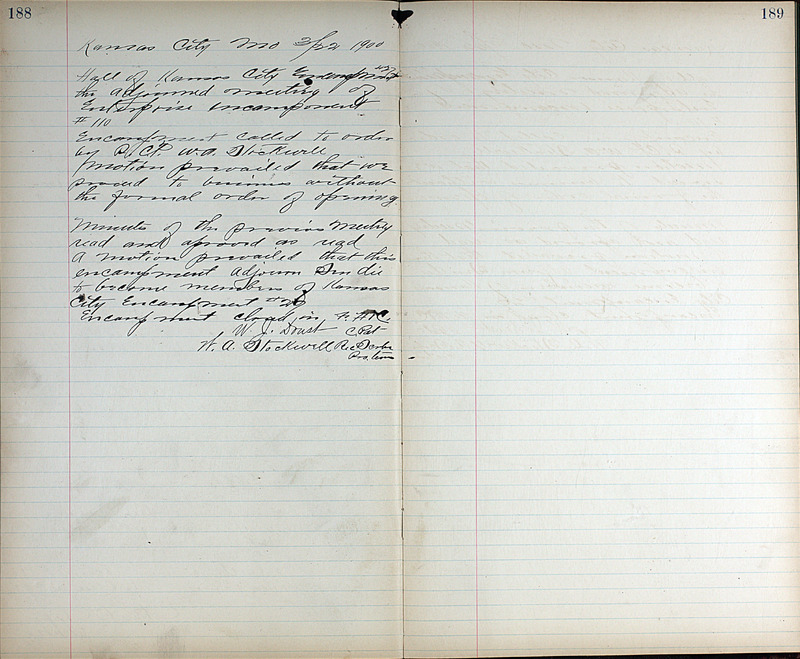 188
Kansas City Mo 3/22 1900
Hall of Kansas City Encampment #29
the adjourned meeting of
Enterprise encampment
#110
Encampment called to order
by P. C.P. W.A. Stockwell
Motion prevailed that we
proceed to business without
the formal order of opening
Minutes of the previous meeting
read and aproved as read
A motion prevailed that this
encampment adjourn Sin die
to become members of Kansas
City Encampment #29
Encampment closed in F. H. C.
W. J. Doust C Pat
W. A. Stockwell Rec Scribe
Pro. tem
189